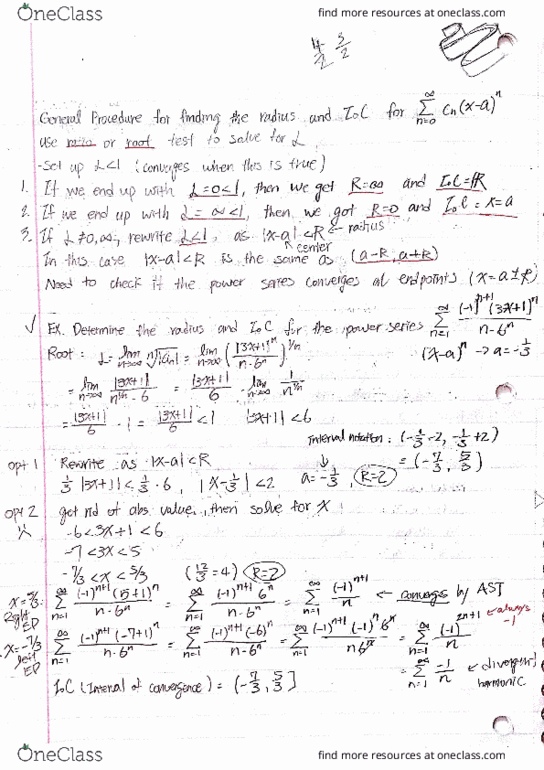 OneClass
find more resources at oneclass.com
4/2 3/2
General Procedure for finding the radius and IoC for ∑_{n=0}^{∞} Cn(x-a)^n
use ratio or root test to solve for L
-Set up L<1 (converges when this is true)
1. If we end up with L=0<1, then we get R=∞ and IoC=ℝ
2. If we end up with L=∞<1, then we got R=0 and IoC=x=a
3. If L≠0,∞, rewrite L<1, as |x-a|<R ← radius
center
In this case |x-a|<R is the same as (a-R, a+R)
Need to check if the power series converges at endpoints (x=a±R)
√ EX. Determine the radius and IoC for the power series ∑_{n=1}^{∞} (-1)^{n+1}(3x+1)^n / n·6^n
Root: L = lim_{n→∞} ⁿ√|an| = lim_{n→∞} (|3x+1|^n / n·6^n)^{1/n}
(x-a)^n → a=-1/3
= lim_{n→∞} |3x+1| / n^{1/n}·6 = |3x+1|/6 · lim_{n→∞} 1/n^{1/n}
= |3x+1|/6 · 1 = |3x+1|/6 <1 |3x+1|<6
Interval notation: (-1/3-2, -1/3+2)
= (-7/3, 5/3)
opt 1 Rewrite as |x-a|<R
1/3 |3x+1| < 1/3·6, |x-1/3|<2 a=-1/3, R=2
opt 2 get rid of abs. value, then solve for x
-6<3x+1<6
-7<3x<5
-7/3<x<5/3 (12/3=4) R=2
x=5/3: right EP ∑_{n=1}^{∞} (-1)^{n+1}(5+1)^n / n·6^n = ∑_{n=1}^{∞} (-1)^{n+1} 6^n / n·6^n = ∑_{n=1}^{∞} (-1)^{n+1} / n ← converges by AST
x=-7/3 left EP ∑_{n=1}^{∞} (-1)^{n+1}(-7+1)^n / n·6^n = ∑_{n=1}^{∞} (-1)^{n+1}(-6)^n / n·6^n = ∑_{n=1}^{∞} (-1)^{n+1}(-1)^n 6^n / n6^n = ∑_{n=1}^{∞} (-1)^{2n+1} / n ← always -1
= ∑_{n=1}^{∞} -1/n ← divergent harmonic
IoC (Interval of convergence) = (-7/3, 5/3]
OneClass
find more resources at oneclass.com